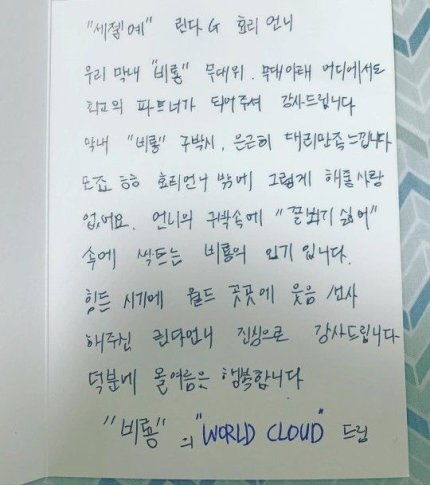 "세젤예" 린다G 효리 언니
우리 막내 "비룡" 무대위, 무대아래 어디에서도
최고의 파트너가 되어주셔 감사드립니다
막내 "비룡" 구박시, 은근히 대리만족느낍니다
또죠 ㅎㅎ 효리언니 밖에 그렇게 해줄사람
없어요. 언니의 구박속에 "꼴뵈기 싫어"
속에 싹트는 비룡의 인기 입니다.
힘든 시기에 월드 곳곳에 웃음 선사
해주신 린다언니 진심으로 감사드립니다
덕분에 올여름은 행복합니다
"비룡"의 "WORLD CLOUD" 드림